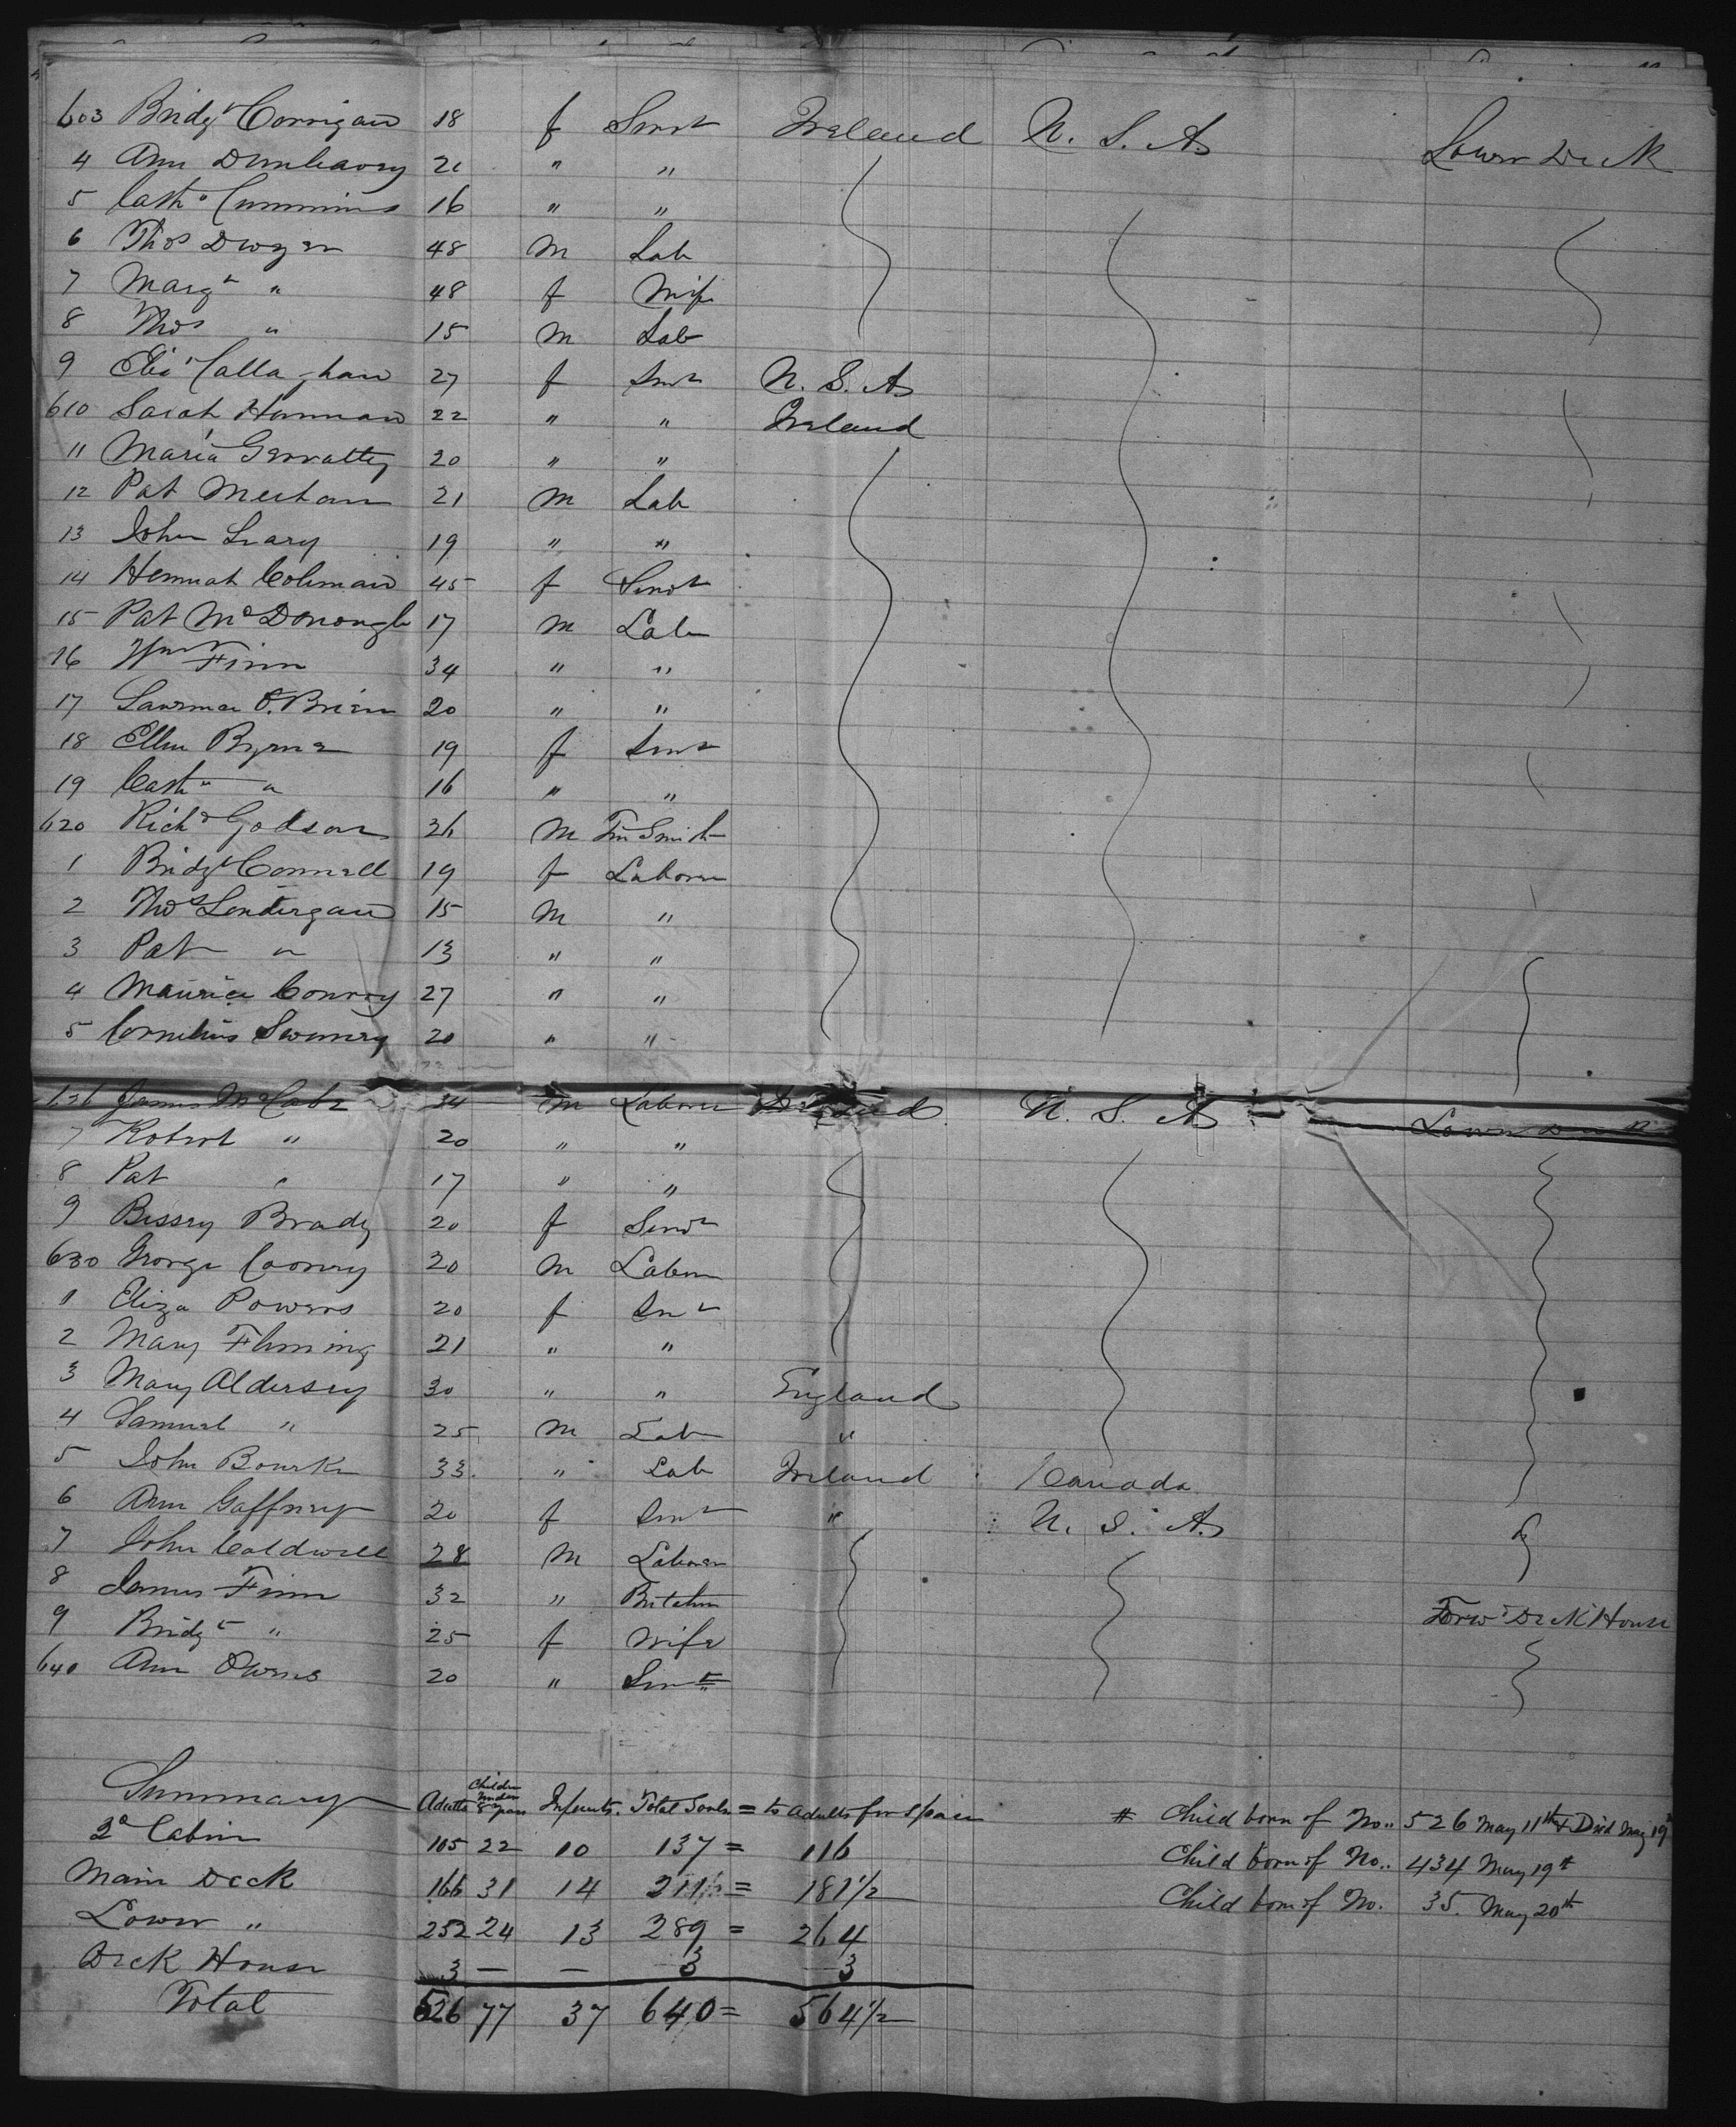 603 Bridgt Corrigan 18 f Servt Ireland U. S. A. Lower Deck
4 Ann Dunleavey 21 " "
5 Cathe Cummins 16 " "
6 Thos Dwyer 48 M Lab
7 Margt " 48 f Wife
8 Thos " 15 M Lab
9 Eliz Callaghan 27 f Servt U. S. A.
610 Sarah Hannan 22 " " Ireland
11 Maria Gerratty 20 " "
12 Pat Meehan 21 M Lab
13 John Leary 19 " "
14 Hannah Coleman 45 f Servt
15 Pat McDonough 17 M Lab
16 Wm Finn 34 " "
17 Lawrence O.Brien 20 " "
18 Ellen Byrne 19 f Servt
19 Cath " 16 " "
620 Richd Godson 26 M Tin Smith
1 Bridgt Connell 19 f Laborer
2 Thos Londergan 15 M "
3 Pat " 13 " "
4 Maurice Conroy 27 " "
5 Cornelius Sweeney 20 " "
626 James McCabe 34 M Laborer Ireland U. S. A. Lower Deck
7 Robert " 20 " "
8 Pat " 17 " "
9 Bessey Brady 20 f Servt
630 George Cooney 20 M Laborer
1 Eliza Powers 20 f Servt
2 Mary Fleming 21 " "
3 Mary Aldersey 30 " " England
4 Samuel " 25 M Lab "
5 John Bourke 33 " Lab Ireland Canada
6 Ann Gaffney 20 f Servt " U. S. A.
7 John Caldwell 28 M Laborer
8 James Finn 32 " Butcher Forwd Deck House
9 Bridgt " 25 f Wife
640 Ann Owens 20 " Servt
Summary Adults Children under 8 years Infants. Total Souls = to adults for space
2d Cabin 105 22 10 137 = 116
Main Deck 166 31 14 211 = 181 1/2
Lower " 252 24 13 289 = 264
Deck House 3 — — 3 3
Total 526 77 37 640 = 564 1/2
# Child born of No.. 526 May 11th & Died May 19th
Child born of No.. 434 May 19th
Child born of No. 35. May 20th